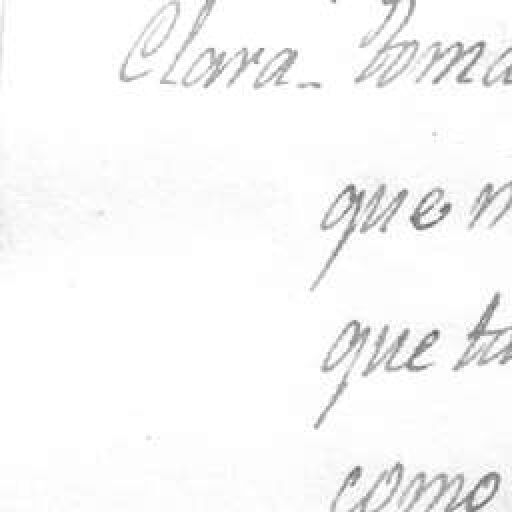 Clara - Toma
que
que
como